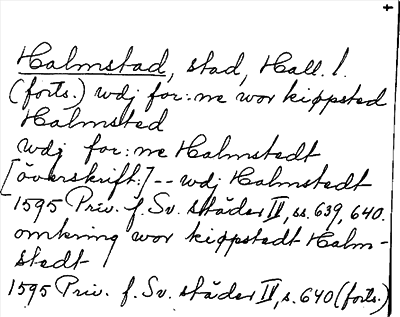 Halmstad, stad, Hall. l.
(forts.) wdj for:ne wor kiøpsted
Halmsted
wdj for:ne Halmstedt
[överskrift:] -- wdj Halmstedt
1595 Priv. f. Sv. städer II, ss. 639, 640.
omkring wor kiøpstedt Halm-
stedt
1595 Priv. f. Sv. städer II, s. 640 (forts.)